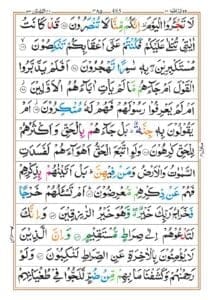 لَا تَجْـَٔرُوا الْيَوْمَ اِنَّكُمْ مِّنَّا لَا تُنْصَرُوْنَ قَدْ كَانَتْ
اٰيٰتِيْ تُتْلٰى عَلَيْكُمْ فَكُنْتُمْ عَلٰٓى اَعْقَابِكُمْ تَنْكِصُوْنَ
مُسْتَكْبِرِيْنَ بِهٖ سٰمِرًا تَهْجُرُوْنَ اَفَلَمْ يَدَّبَّرُوا
الْقَوْلَ اَمْ جَآءَهُمْ مَّا لَمْ يَاْتِ اٰبَآءَهُمُ الْاَوَّلِيْنَ
اَمْ لَمْ يَعْرِفُوْا رَسُوْلَهُمْ فَهُمْ لَهٗ مُنْكِرُوْنَ اَمْ
يَقُوْلُوْنَ بِهٖ جِنَّةٌ بَلْ جَآءَهُمْ بِالْحَقِّ وَاَكْثَرُهُمْ
لِلْحَقِّ كٰرِهُوْنَ وَلَوِ اتَّبَعَ الْحَقُّ اَهْوَآءَهُمْ لَفَسَدَتِ
السَّمٰوٰتُ وَالْاَرْضُ وَمَنْ فِيْهِنَّ بَلْ اَتَيْنٰهُمْ بِذِكْرِهِمْ
فَهُمْ عَنْ ذِكْرِهِمْ مُّعْرِضُوْنَ اَمْ تَسْـَٔلُهُمْ خَرْجًا
فَخَرَاجُ رَبِّكَ خَيْرٌ وَّهُوَ خَيْرُ الرّٰزِقِيْنَ وَاِنَّكَ
لَتَدْعُوْهُمْ اِلٰى صِرَاطٍ مُّسْتَقِيْمٍ وَاِنَّ الَّذِيْنَ
لَا يُؤْمِنُوْنَ بِالْاٰخِرَةِ عَنِ الصِّرَاطِ لَنٰكِبُوْنَ وَلَوْ
رَحِمْنٰهُمْ وَكَشَفْنَا مَا بِهِمْ مِّنْ ضُرٍّ لَّلَجُّوْا فِيْ طُغْيَانِهِمْ